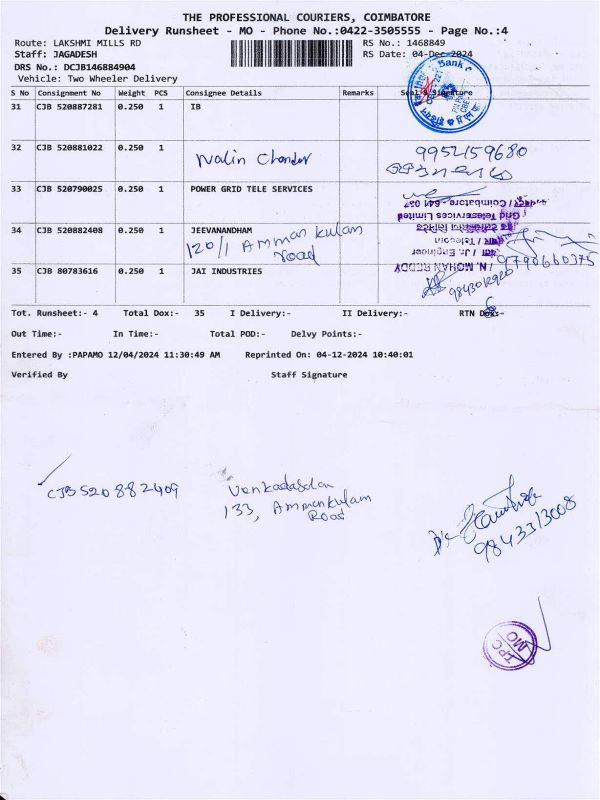 THE PROFESSIONAL COURIERS, COIMBATORE
Delivery Runsheet - MO - Phone No.:0422-3505555 - Page No.:4
Route: LAKSHMI MILLS RD RS No.: 1468849
Staff: JAGADESH RS Date: 04-Dec-2024
DRS No.: DCJB146884904
Vehicle: Two Wheeler Delivery
S No Consignment No Weight PCS Consignee Details Remarks Seal & Signature
31 CJB 520887281 0.250 1 IB
Bank
32 CJB 520881022 0.250 1 Nalin Chander 9952159680
33 CJB 520790025 0.250 1 POWER GRID TELE SERVICES
Coimbatore - 641 037
Grid Teleservices Limited
Telecom
Jr. Engineer
N. MOHAN REDDY
34 CJB 520882408 0.250 1 JEEVANANDHAM
120/1 Amman Kulam
road
9790660375
35 CJB 80783616 0.250 1 JAI INDUSTRIES
Tot. Runsheet:- 4 Total Dox:- 35 I Delivery:- II Delivery:- RTN Dox:-
Out Time:- In Time:- Total POD:- Delvy Points:-
Entered By :PAPAMO 12/04/2024 11:30:49 AM Reprinted On: 04-12-2024 10:40:01
Verified By Staff Signature
CJB 520882409 Venkadasalan
133, Ammankulam
Road
9843313008
TPC
MO